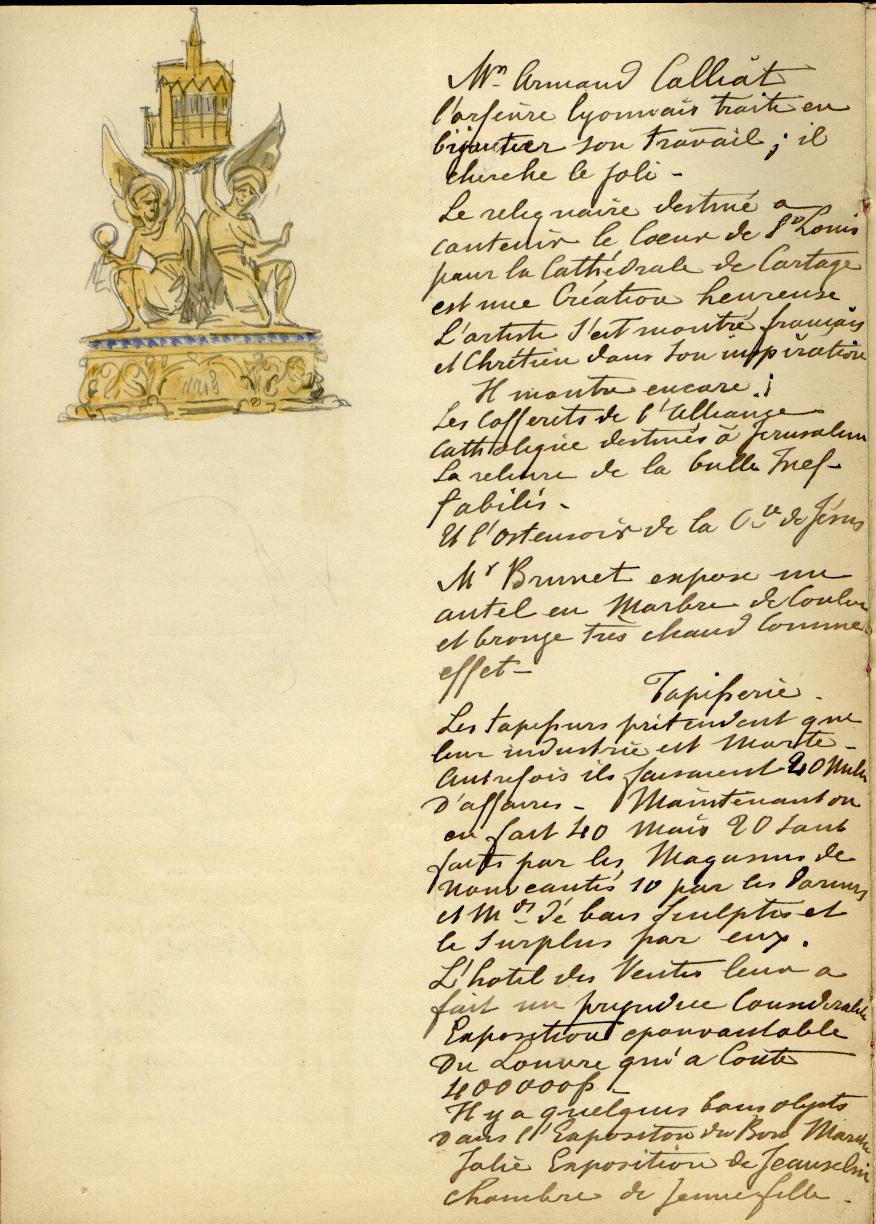 Mr Armand Calliat
l'orfèvre lyonnais traite en
bijoutier son travail ; il
cherche le joli -
Le reliquaire destiné a
contenir le Coeur de St Louis
pour la Cathédrale de Cartage
est une Création heureuse
L'artiste s'est montré français
et Chrétien dans son inspiration
Il montre encore :
Les Coffrets de l'Alliance
Catholique destinés à Jerusalem
La reliure de la bulle Inef-
fabilis -
Et l'ostensoir de la Cie de Jésus
Mr Brunet expose un
autel en Marbre de Couleur
et bronze très chaud Comme
effet -
Tapisserie .
Les tapissiers prétendent que
leur industrie est Morte -
Autrefois ils faisaient 20 Mill
D'affaires - Maintenant on
en fait 40 Mais 20 sont
faits par les Magasins de
Nouveautés 10 par les
et Mds de bois Sculptés et
le surplus par eux .
L'hotel des Ventes leur a
fait un prejudice Considerable
Exposition epouvantable
Du Louvre qui a Couté
400000f
Il y a quelques bons objets
Dans l'Exposition du Bon Marché
Jolie Exposition de Jeanselm
Chambre de Jeune fille -